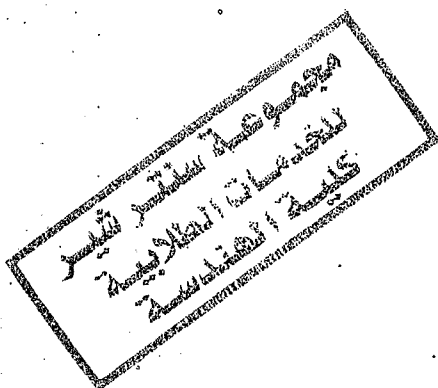 مجموعة سنتر تيسر
للخدمات الطلابية
كلية الهندسة